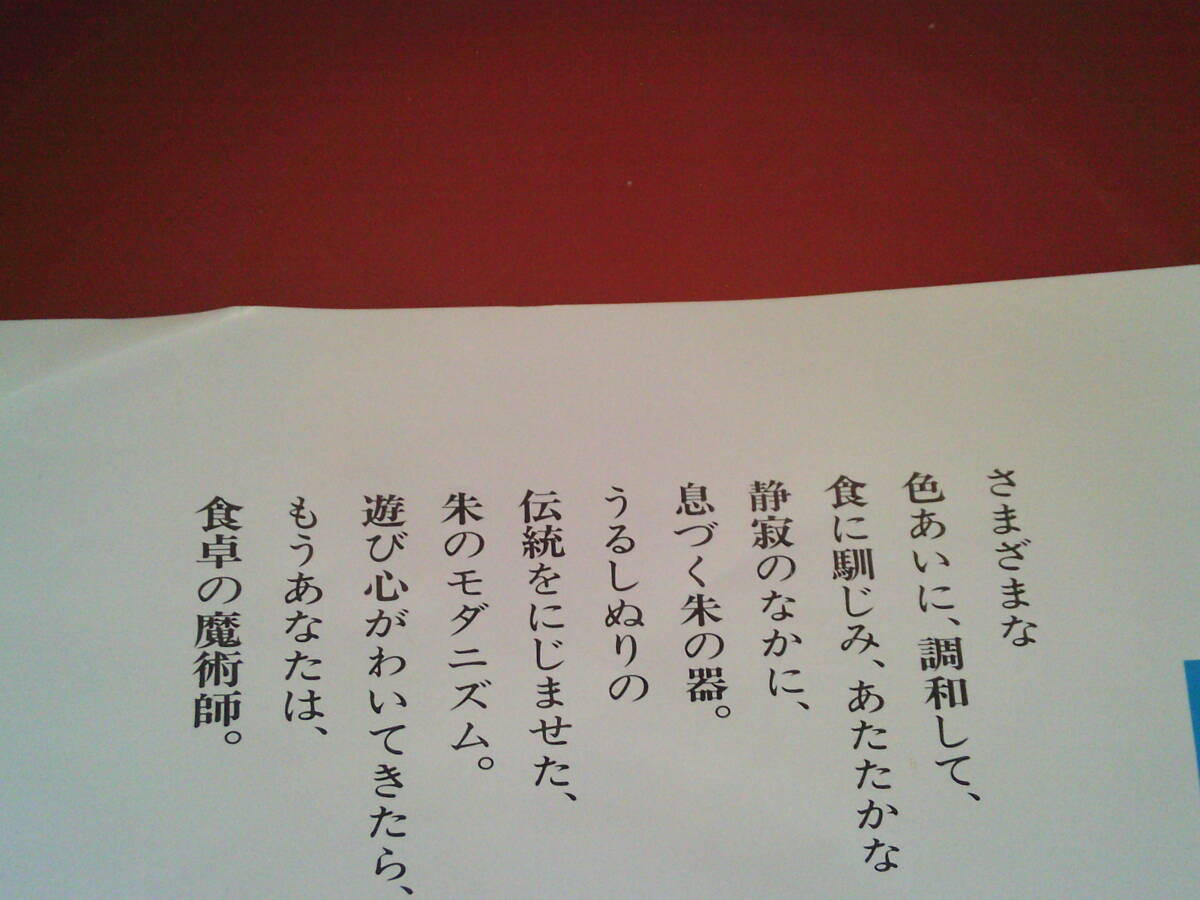 さまざまな
色あいに、調和して、
食に馴じみ、あたたかな
静寂のなかに、
息づく朱の器。
うるしぬりの
伝統をにじませた、
朱のモダニズム。
遊び心がわいてきたら、
もうあなたは、
食卓の魔術師。